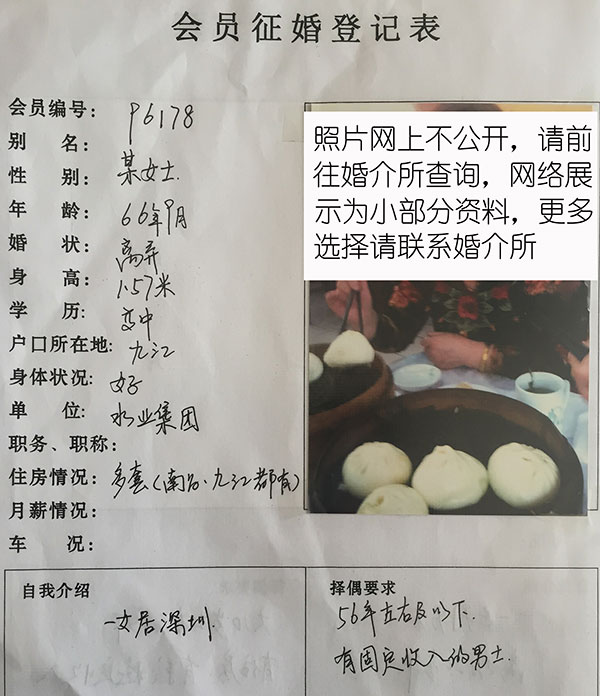 会员征婚登记表
会员编号: P6178
别 名:
性 别: 某女士.
年 龄: 66年9月
婚 状: 离弃
身 高: 1.57米
学 历: 高中
户口所在地: 九江
身体状况: 好
单 位: 水业集团
职务、职称:
住房情况: 多套(南昌.九江都有)
月薪情况:
车 况:
照片网上不公开，请前
往婚介所查询，网络展
示为小部分资料，更多
选择请联系婚介所
自我介绍
一女居深圳.
择偶要求
56年左右及以下.
有固定收入的男士.